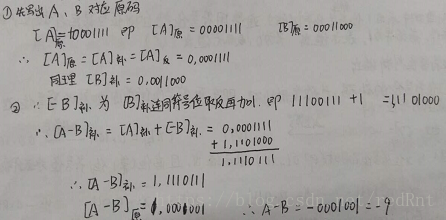 ①先写出A、B对应原码
[A]原=+0001111 即 [A]原=00001111 [B]原=00011000
∴ [A]原=[A]补=[A]反=0,0001111
同理 [B]补=0,0011000
② ∵[-B]补 为 [B]补连同符号位取反再加1. 即 11100111 +1 =1,1101000
∴[A-B]补=[A]补+[-B]补= 0,0001111
+ 1,1101000
1,1110111
∴[A-B]补=1,1110111
[A-B]原=1,0001001 ∴A-B=-0001001=-9